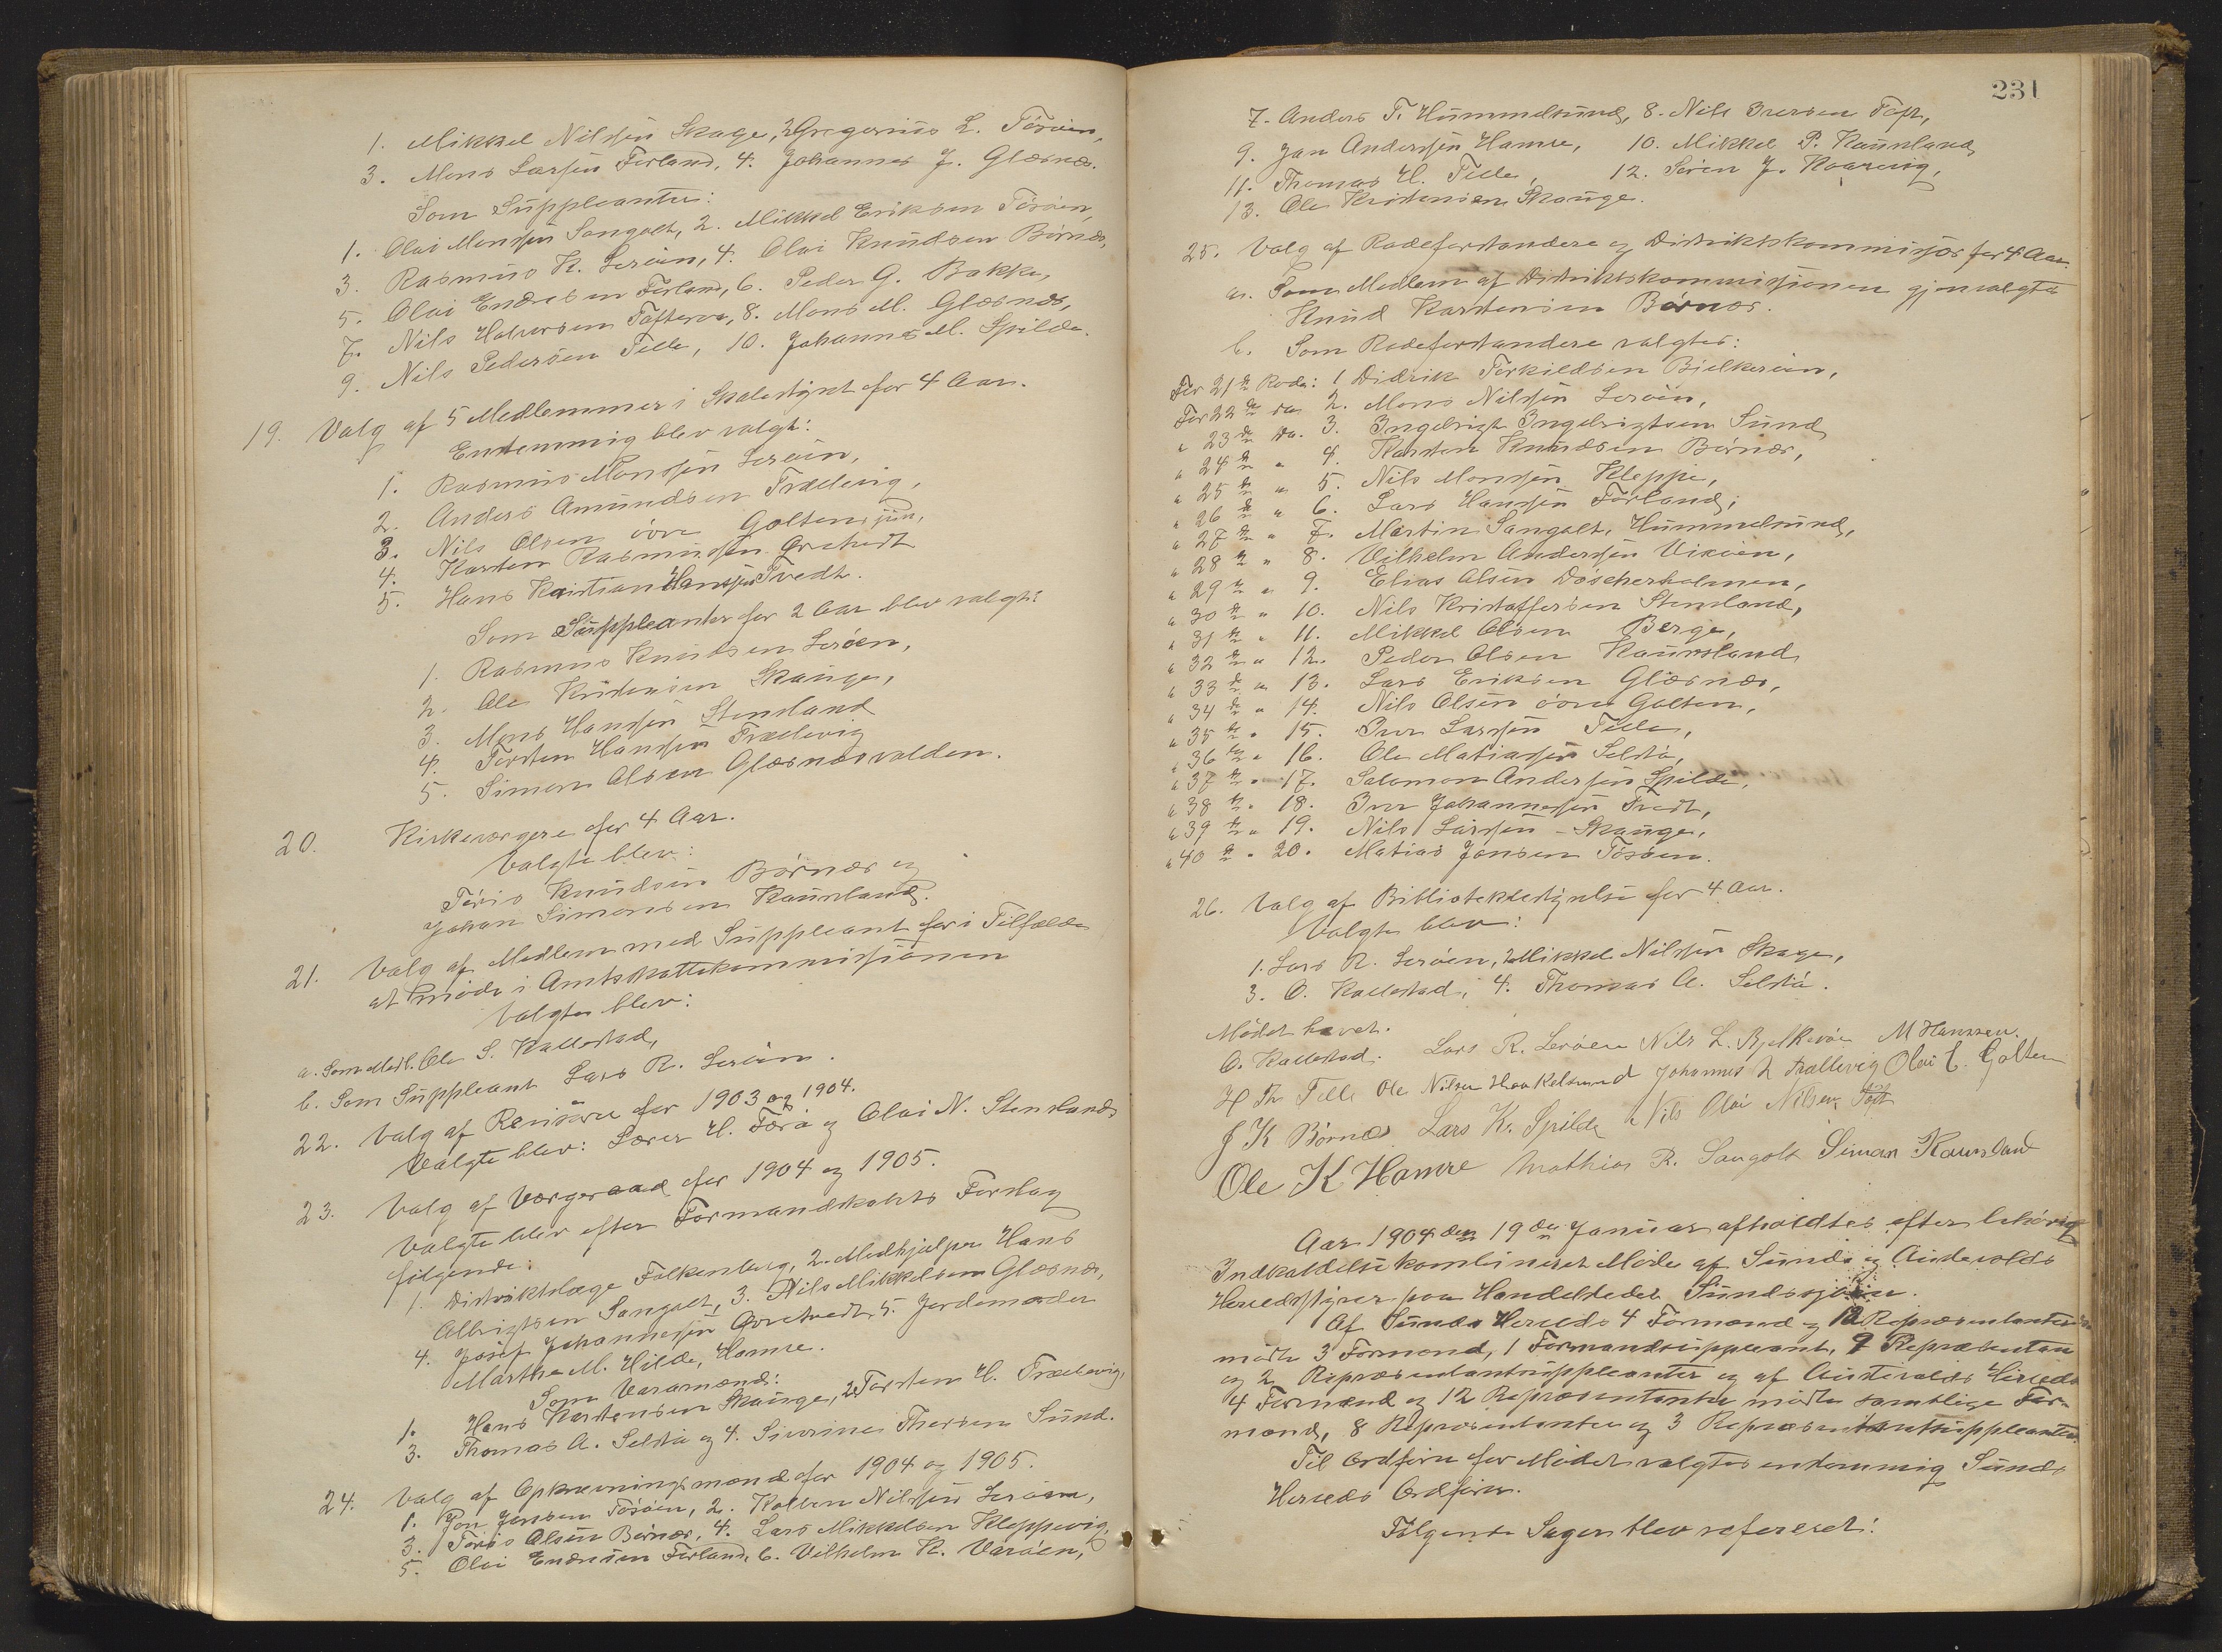 1. Mikkel Nilssen Skage, 2 Gregorius L. Törøen,
3. Mons Larssen Forland, 4. Johannes J. Glæsnæs.
Som Suppleanter:
1. Olai Monssen Sangolt, 2. Mikkel Eriksen Tösöen,
3. Rasmus K. Leröen, 4. Olai Knudsen Börnæs,
5. Olai Endresen Forland, 6. Peder G. Bakke,
7. Nils Halvorsen Tofterøe, 8. Mons M. Glæsnæs,
9. Nils Pedersen Telle, 10. Johannes M. Spilde.
19. Valg af 5 Medlemmer i Skolestyret for 4 Aar.
Enstemmig blev valgt:
1. Rasmus Monssen Leröen,
2. Anders Amundsen Trællevig,
3. Nils Olsen övre Golten, jün,
4. Karsten Rasmussen Gravtvedt
5. Hans Kristian Hanssen Tvedt.
Som Suppleanter for 2 Aar blev valgt:
1. Rasmus Knudsen Leröen,
2. Ole Kristensen Skauge,
3. Mons Hanssen Stensland
4. Torsten Hanssen Trællevig
5. Simon Olsen Glæsnæsvalden.
20. Kirkeværgere for 4 Aar.
Valgte blev:
Töris Knudsen Börnæs og
Johan Simonsen Kaursland.
21. Valg af Medlem med Suppleant for i Tilfælde
at möde i Amtsskattekommissionen
Valgte blev:
a. Som Medl. Ole S. Kallestad,
b. Som Suppleant Lars R. Leröen.
22. Valg af Revisorer for 1903 og 1904.
Valgte blev: Lærer H. Færö og Olai N. Stensland
23. Valg af Værgeraad for 1904 og 1905.
Valgte blev efter Formandskabets Forslag
følgende:
1. Distriktslæge Falkenberg, 2. Medhjælper Hans
Albrigtsen Sangolt, 3. Nils Mikkelsen Glæsnæs,
4. Josef Johannessen Gravtvedt, 5. Jordemoder
Marthe M. Hilde, Hamre.
Som Varamænd:
1. Hans Karstensen Skauge, 2. Torsten H. Trællevig,
3. Thomas A. Selstö og 4. Siverine Thorsen Sund.
24. Valg af Opkrævningsmænd for 1904 og 1905.
1. Jon Jensen Tösöen, 2. Kolben Nilssen Leröen,
3. Töris Olsen Börnæs, 4. Lars Mikkelsen Kleppevig,
5. Olai Endresen Forland, 6. Vilhelm K. Väröen,
231
7. Anders T. Hummelsund, 8. Nils Iversen Toft,
9. Jan Anderssen Hamre, 10. Mikkel P. Kaursland,
11. Thomas H. Telle, 12. Sören J. Kaarevig,
13. Ole Kristensen Skauge.
25. Valg af Rodeforstandere og Distriktskommissær for 4 Aar.
a. Som Medlem af Distriktskommissionen gjenvalgtes
Knud Karstensen Börnæs.
b. Som Rodeforstandere valgtes:
For 21de Rode: 1 Didrik Torkildsen Bjelkeröen,
For 22de do 2. Mons Nilssen Leröen,
" 23de do. 3. Ingebrigt Ingebrigtsen Sund,
" 24de " 4. Karsten Knudsen Börnæs,
" 25de " 5. Nils Monssen Kleppe,
" 26de " 6. Lars Hanssen Forland,
" 27de " 7. Martin Sangolt, Hummelsund,
" 28de " 8. Vilhelm Anderssen Vixöen,
" 29de " 9. Elias Olsen Döscherholmen,
" 30te " 10. Nils Kristoffersen Stensland,
" 31te " 11. Mikkel Olsen Berge,
" 32te " 12. Peder Olsen Kaursland
" 33de " 13. Lars Eriksen Glæsnæs,
" 34de " 14. Nils Olsen övre Golten,
" 35te " 15. Iver Larssen Telle,
" 36te " 16. Ole Matiassen Selstö,
" 37te " 17. Salomon Anderssen Spilde,
" 38te " 18. Iver Johannessen Tvedt,
" 39te " 19. Nils Larssen Skauge,
" 40de " 20. Matias Jansen Tösöen.
26. Valg af Biblioteksbestyrelse for 4 Aar.
Valgte blev:
1. Lars R. Leröen, 2 Mikkel Nilssen Skage,
3. O. Kallestad, 4. Thomas A. Selstö.
Mödet hævet.
O. Kallestad. Lars R. Leröen Nils L. Bjelkeröe M Hanssen.
H Th Telle Ole Nilsen Haakelsund Johannes H Trællevig Olai E. Golten
J K Börnæs Lars K. Spilde Nils Olai Nilsen Toft
Ole K Hamre Mathias R. Sangolt Simon Kaursland
Aar 1904 den 19de Januar afholdtes efter lovlig
Indkaldelse kombineret Möde af Sunds og Austevolds
Herredsstyrer paa Handelstedet Sundssjöen.
Af Sunds Herreds 4 Formænd og 12 Repræsentanter
mödte 3 Formænd, 1 Formandssuppleant, 9 Repræsentan
og 2 Repræsentantsuppleanter og af Austevolds Herreds
4 Formænd og 12 Repræsentanter mödte samtlige For-
mænd, 8 Repræsentanter og 3 Repræsentantsuppleanter.
Til Ordförer for Mödet valgtes enstemmig Sunds
Herreds Ordförer.
Fölgende Sager blev refereret: